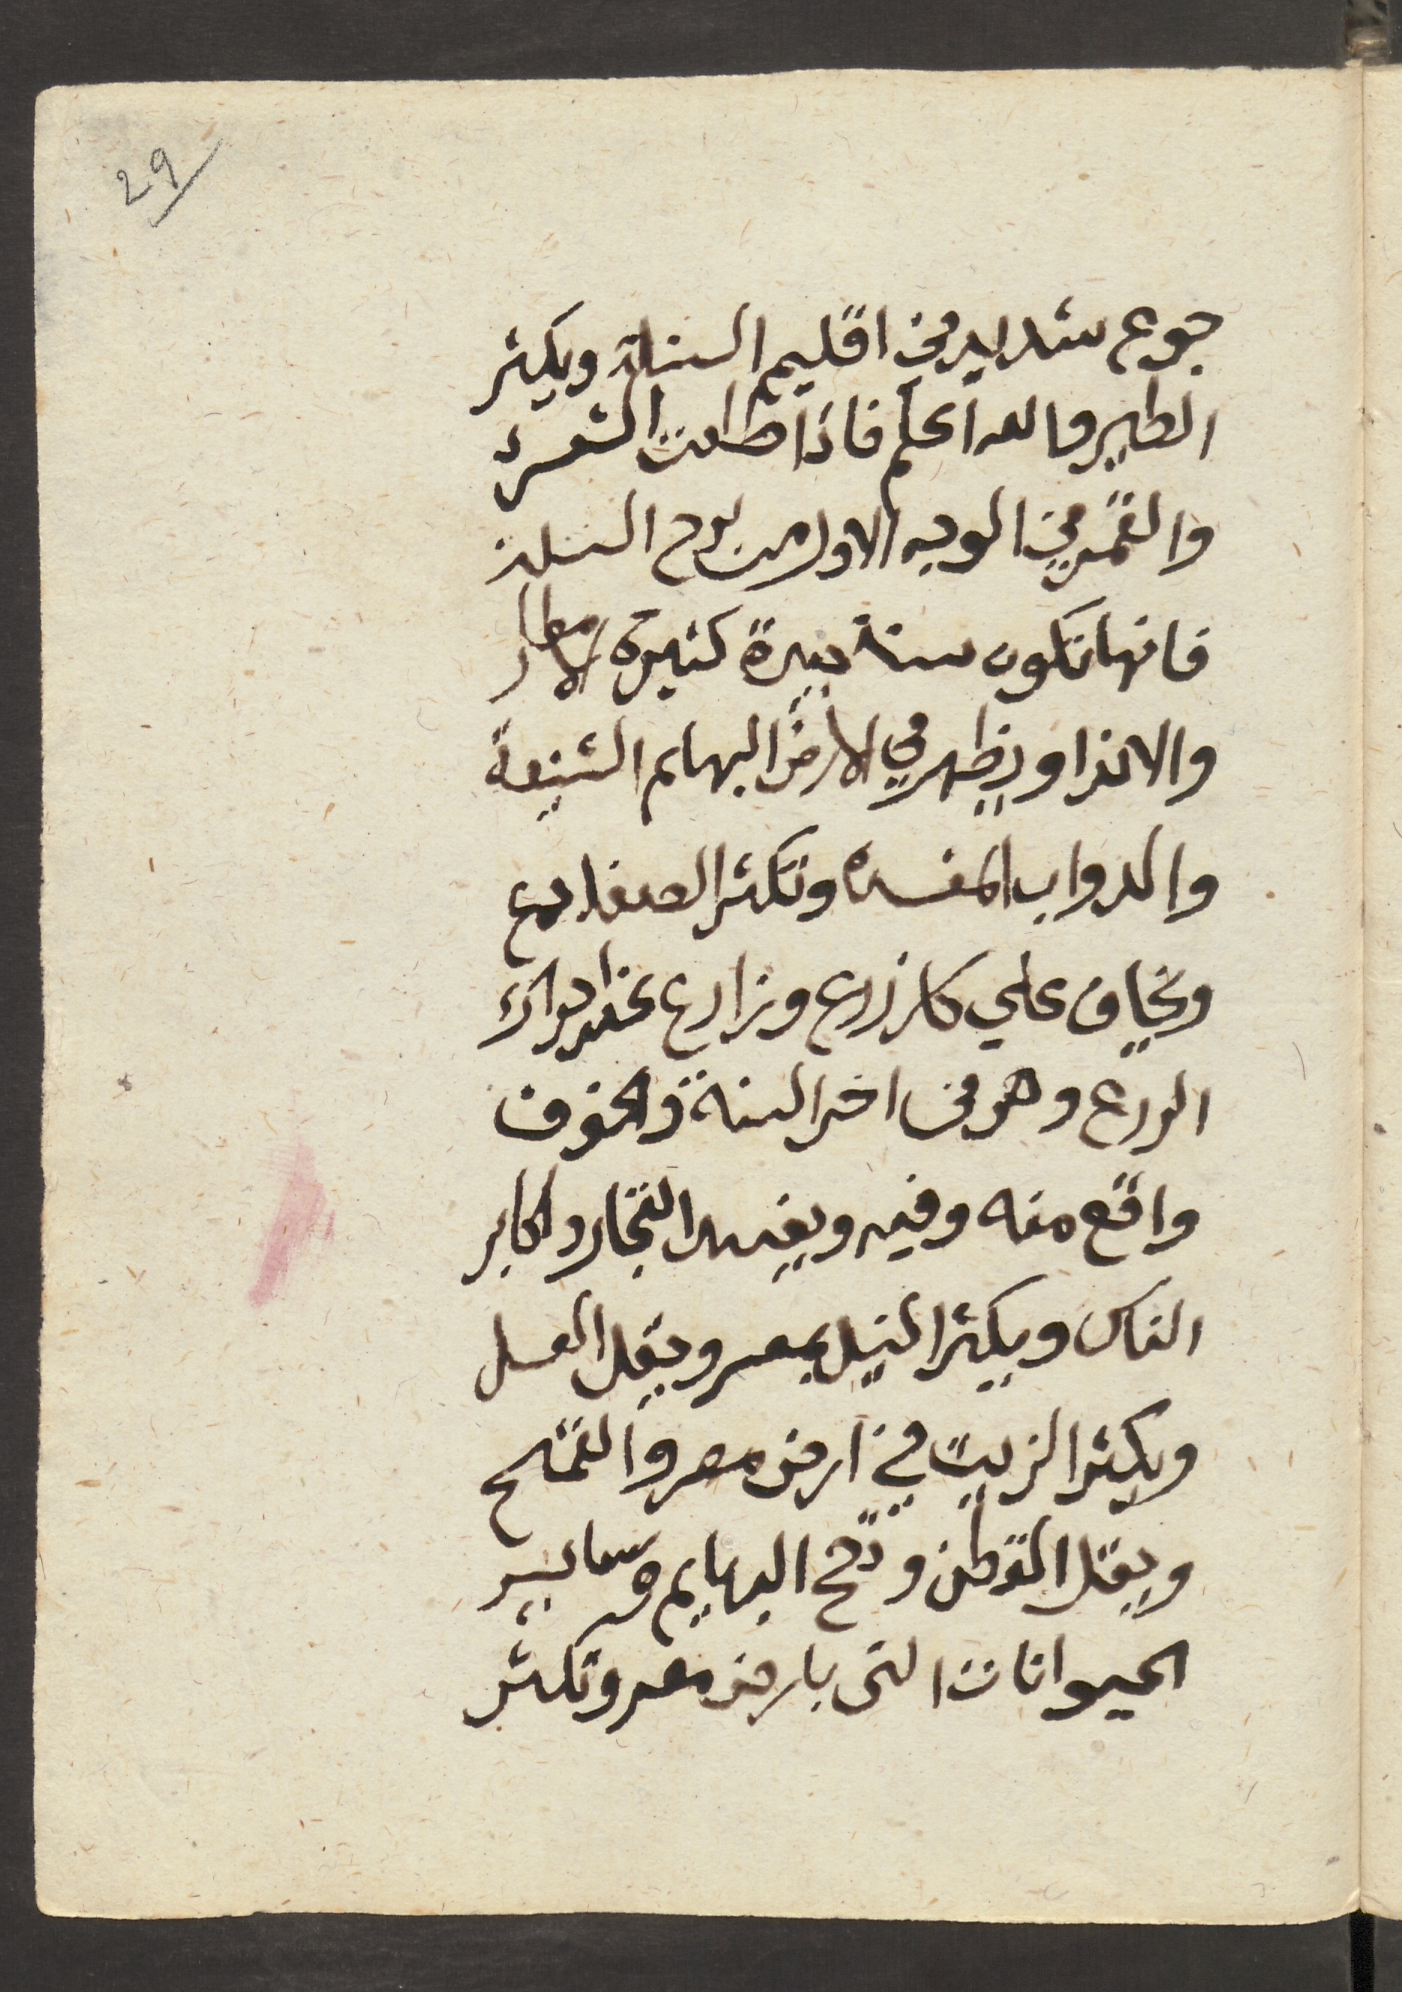 29
جوع شديد في اقليم السنة ويكثر
الطير والله اعلم فاذا طلعت الشعرى
والقمر في الوجه الاول من برج السنبلة
فانها تكون سنة جيدة كثيرة الامطار
والاندا ويظهر في الارض البهايم الشنيعة
والدواب المفسده وتكثر الضفادع
ويخاف علي كل زرع وزارع عند ادراك
الزرع وهو في اخر السنة والخوف
واقع منه وفيه ويفسد التجار واكابر
الناس ويكثر النيل بمصر ويقل العسل
ويكثر الزيت في ارض مصر والقمح
ويقل القطن و البهايم وساير
الحيوانات التى بارض مصر وتكثر